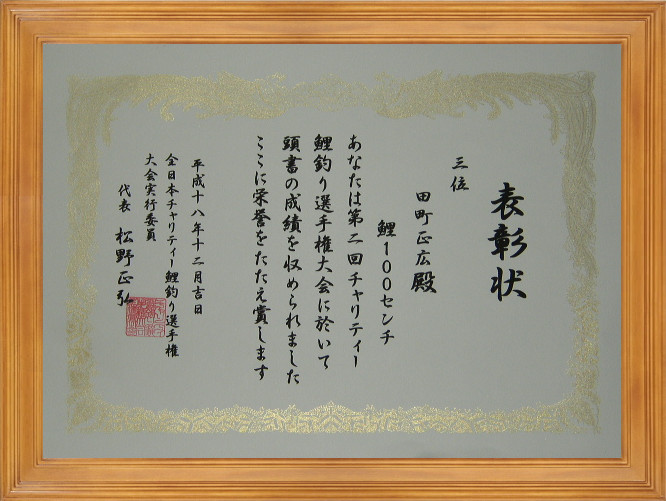 表彰状
三位
田町正広殿
鯉100センチ
あなたは第二回チャリティー
鯉釣り選手権大会に於いて
頭書の成績を収められました
ここに栄誉をたたえ賞します
平成十八年十二月吉日
全日本チャリティー鯉釣り選手権
大会実行委員
代表 松野正弘